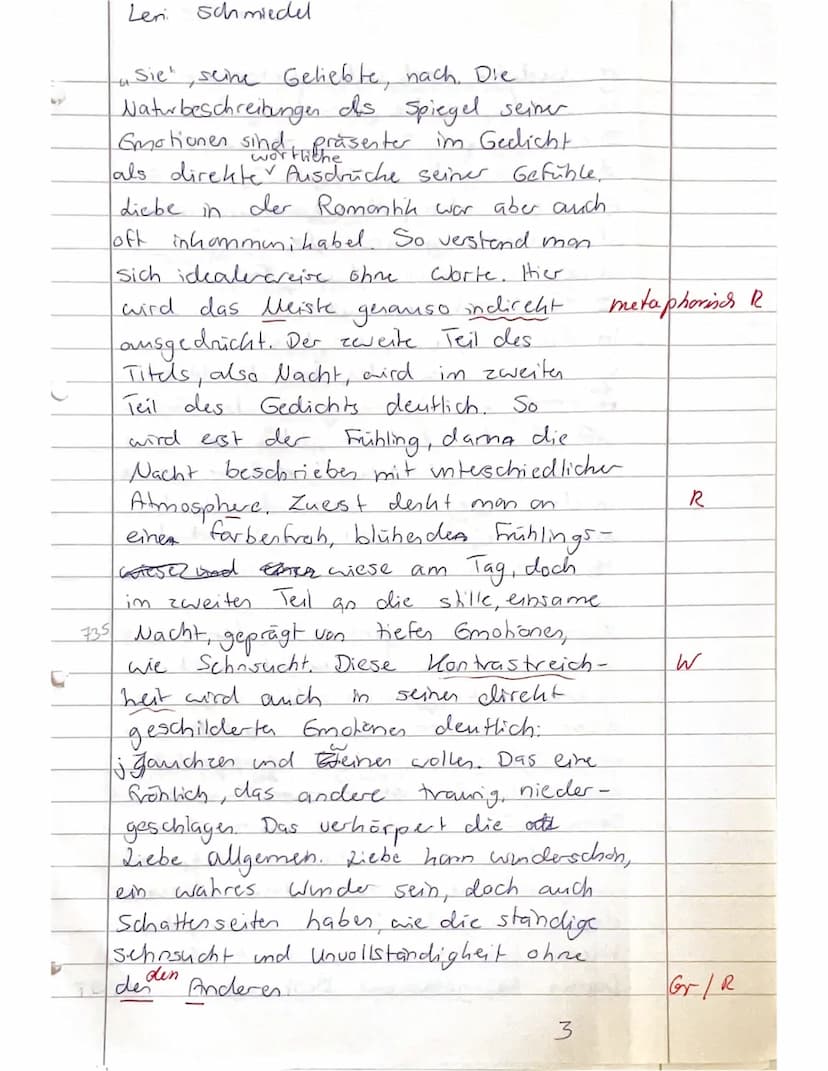 Leni Schmiedel
„Sie“, seine Geliebte, nach. Die
Naturbeschreibungen als Spiegel seiner
Emotionen sind präsenter im Gedicht
wörtliche
als direkte Ausdrücke seiner Gefühle.
Liebe in der Romantik war aber auch
oft inkommunikabel. So verstand man
sich idealerweise ohne Worte. Hier
wird das Meiste genauso indirekt metaphorisch R
ausgedrückt. Der zweite Teil des
Titels, also Nacht, wird im zweiten
Teil des Gedichts deutlich. So
wird erst der Frühling, dann die
Nacht beschrieben mit unterschiedlicher
Atmosphere. Zuest denkt man an R
einen farbenfroh, blühenden Frühlings-
wiese am Tag, doch
im zweiten Teil an die stille, einsame
735 Nacht, geprägt von tiefen Emotionen,
wie Sehnsucht. Diese Kontrastreich- W
heit wird auch in seinen direkt
geschilderten Emotionen deutlich:
jauchzen und weinen wollen. Das eine
fröhlich, das andere traurig, nieder-
geschlagen. Das verkörpert die
Liebe allgemein. Liebe kann wunderschön,
ein wahres Wunder sein, doch auch
Schattenseiten haben, wie die ständige
Sehnsucht und Unvollständigkeit ohne
den
der Anderen. Gr/R
3